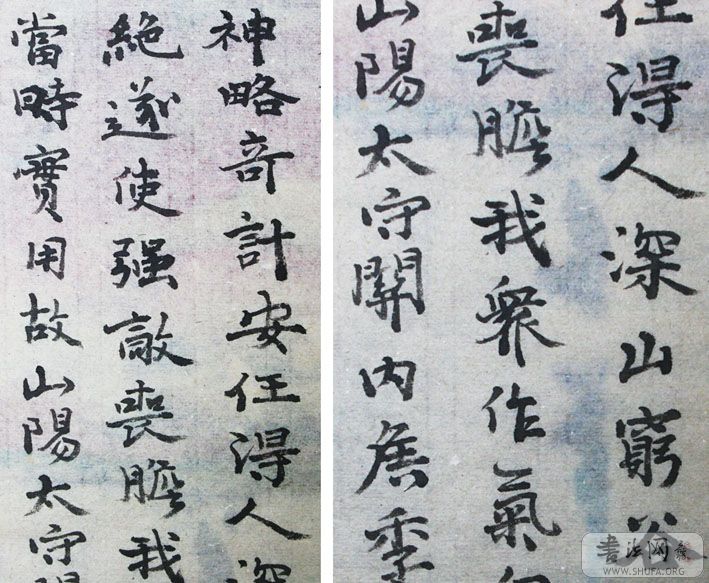 神略奇計安任得人深
絕遂使强敵喪膽我
當時實用故山陽太守
任得人深山窮
喪膽我衆作氣
山陽太守關内侯季
書法网
WWW.SHUFA.ORG